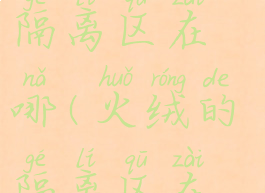 gé lí qū zài
隔离区在
nǎ huǒ róng de
哪(火绒的
gé lí qū zài
隔离区在